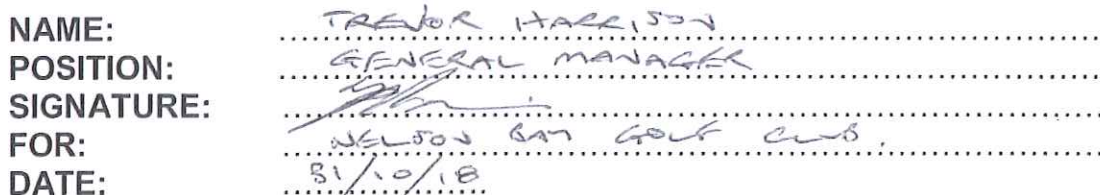 NAME: TREVOR HARRISON
POSITION: GENERAL MANAGER
SIGNATURE:
FOR: NELSON BAY GOLF CLUB.
DATE: 31/10/18